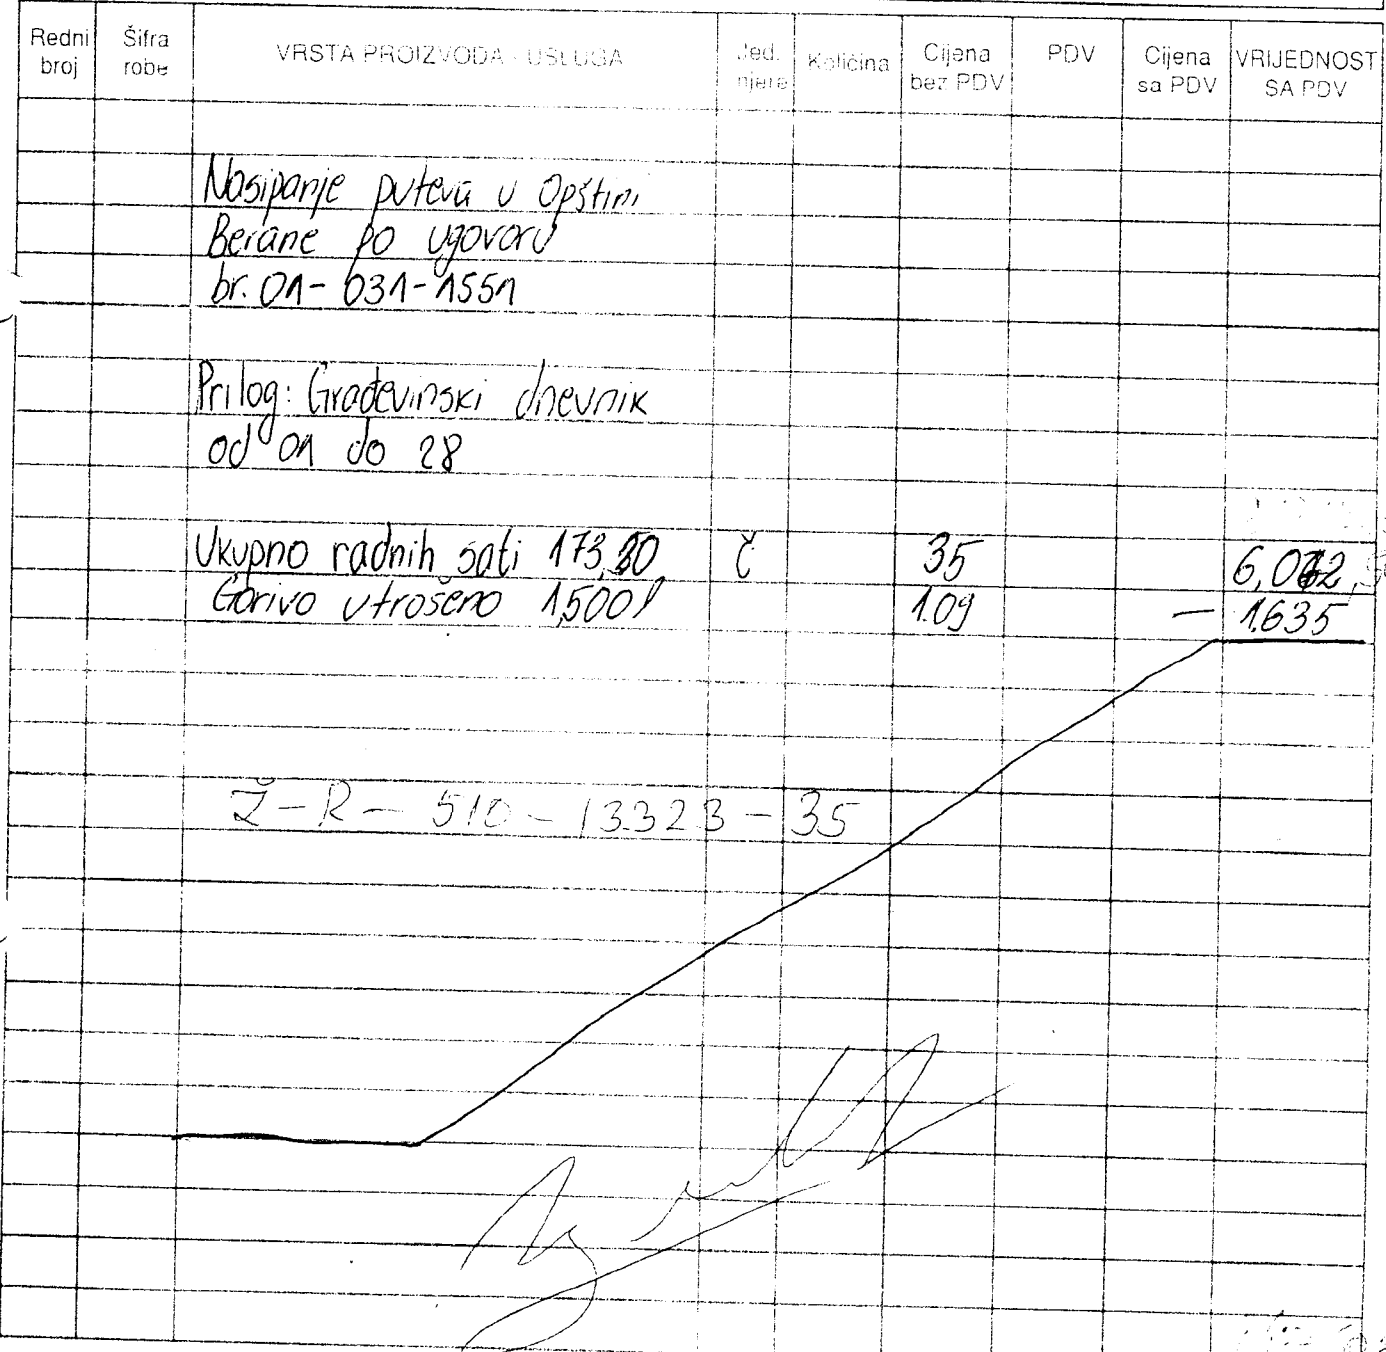 Redni broj Šifra robe VRSTA PROIZVODA - USLUGA Jed. mjere Količina Cijena bez PDV PDV Cijena sa PDV VRIJEDNOST SA PDV
Nasipanje puteva u Opštini
Berane po ugovoru
br. 01-031-1551
Prilog: Građevinski dnevnik
od 01 do 28
Ukupno radnih sati 173,50 č 35 6,072
Gorivo utrošeno 1,500 l 1.09 — 1.635
Ž-R- 510-13323-35